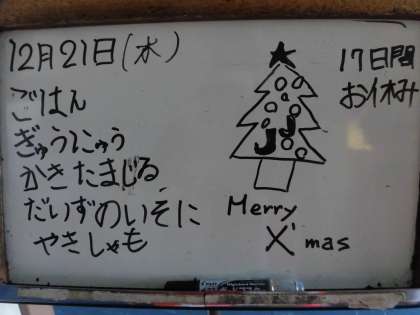 12月21日(水)
ごはん
ぎゅうにゅう
かきたまじる
だいずのいそに
やきしゃも
17日間
お休み
JJ
Merry
X'mas